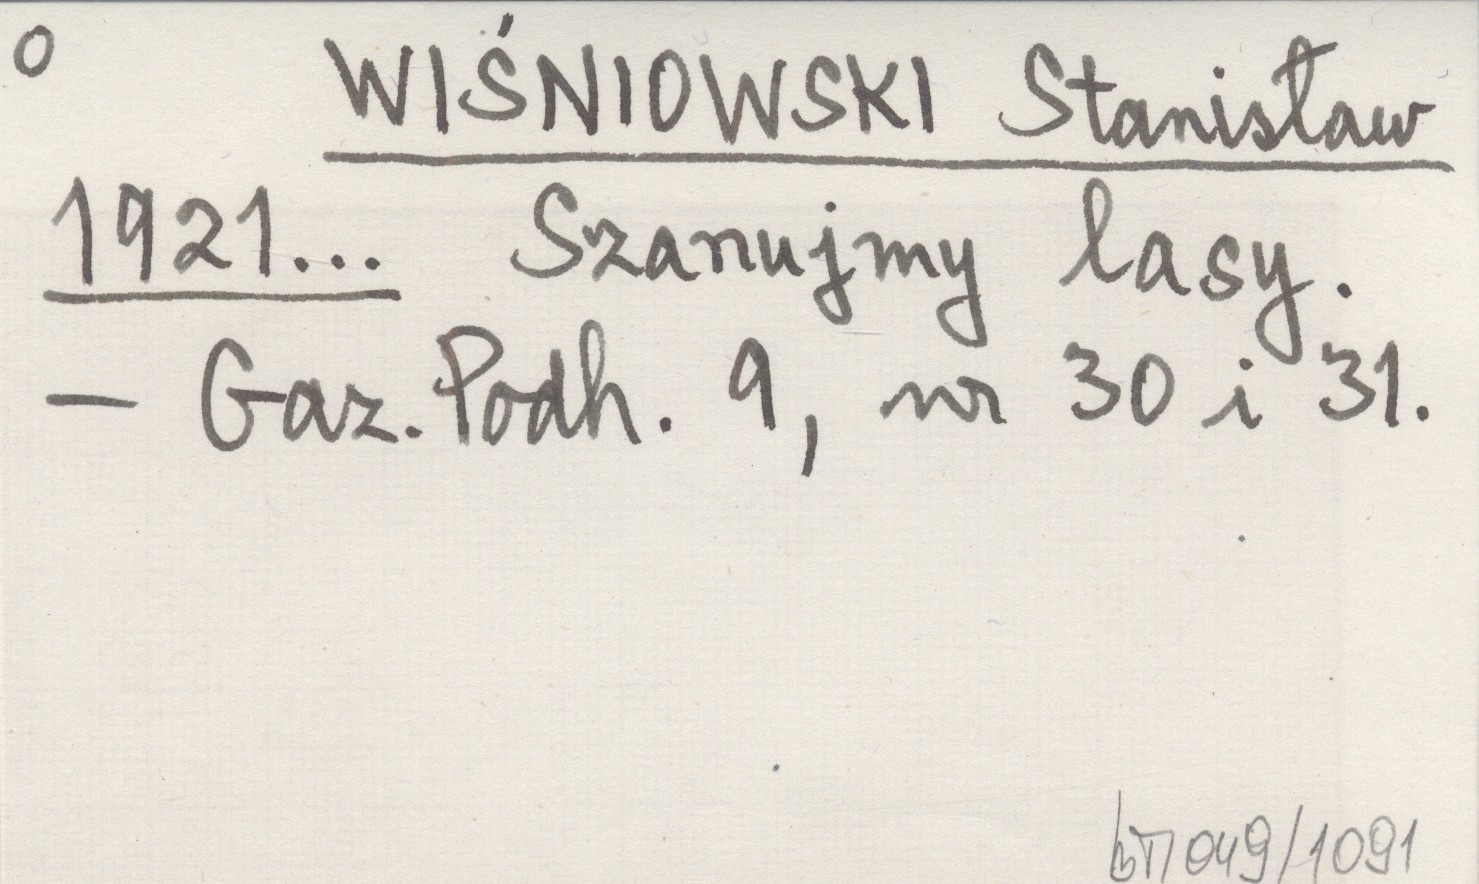 O WIŚNIOWSKI Stanisław
1921... Szanujmy lasy.
— Gaz. Podh. 9, nr 30 i 31.
049/1091